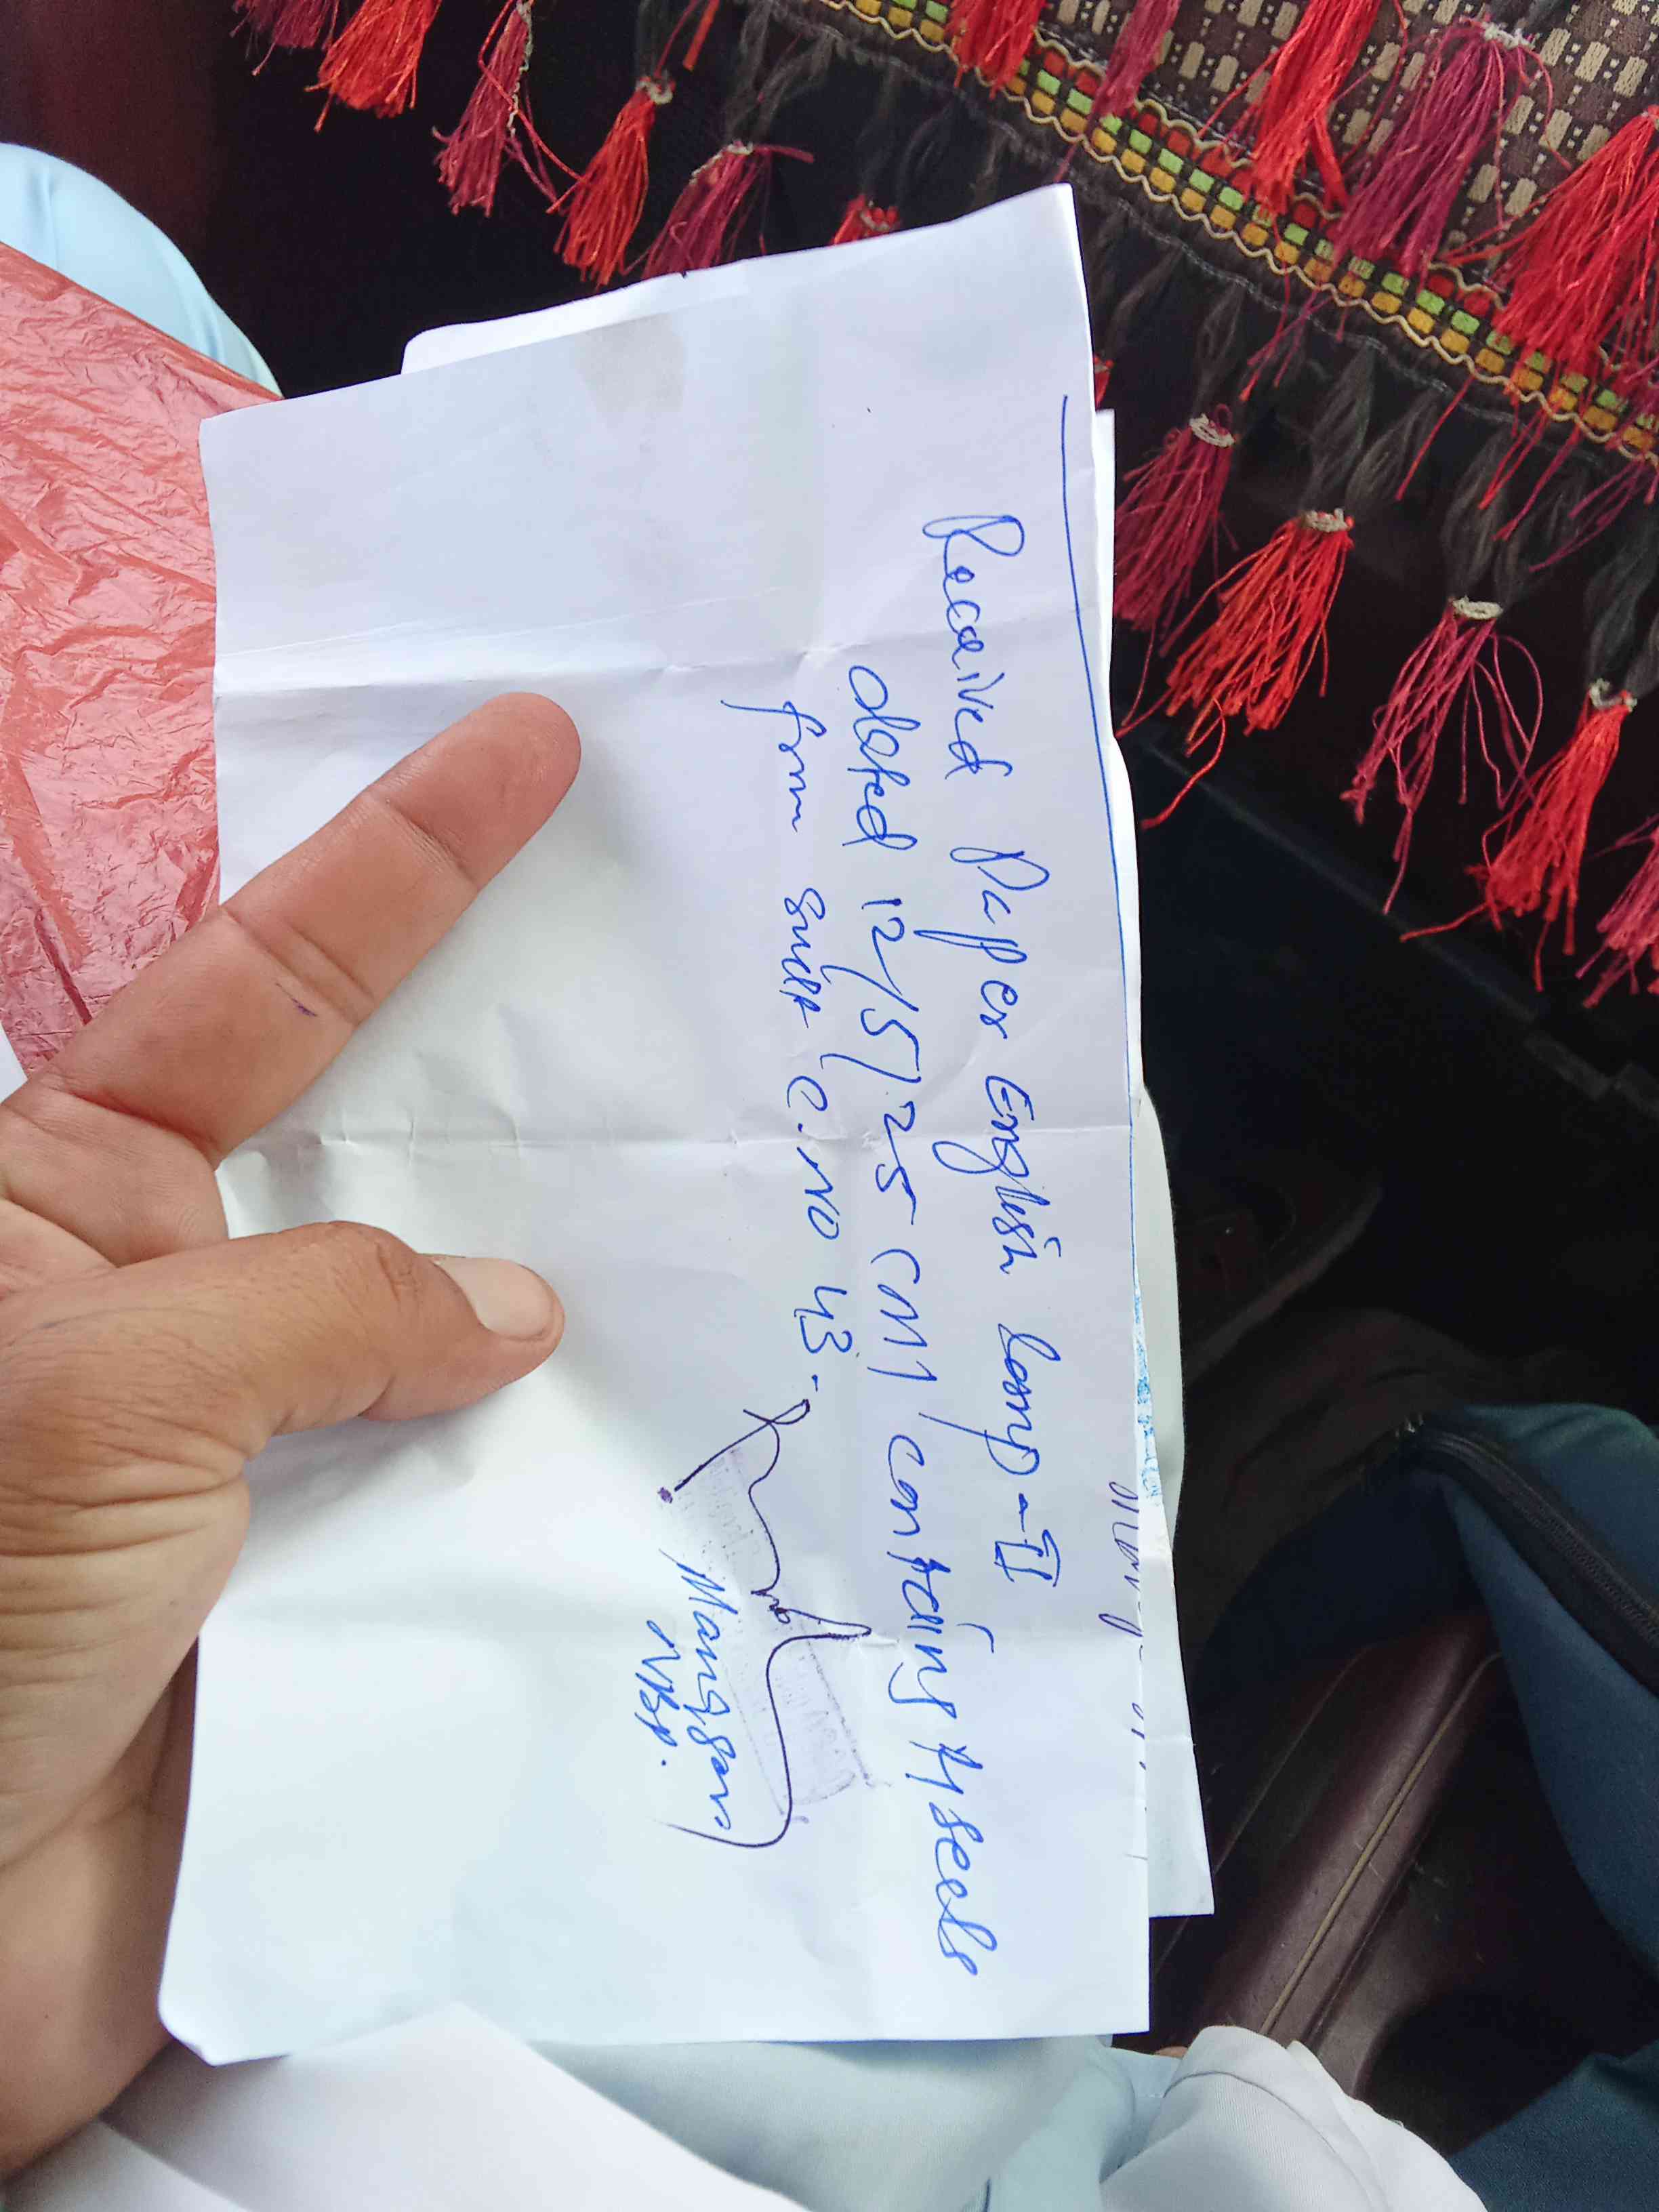 Received Paper English Comp-II
dated 12/5/25 (M) containing 4 seels
from supt C.NO 43.
Manager
NBP.